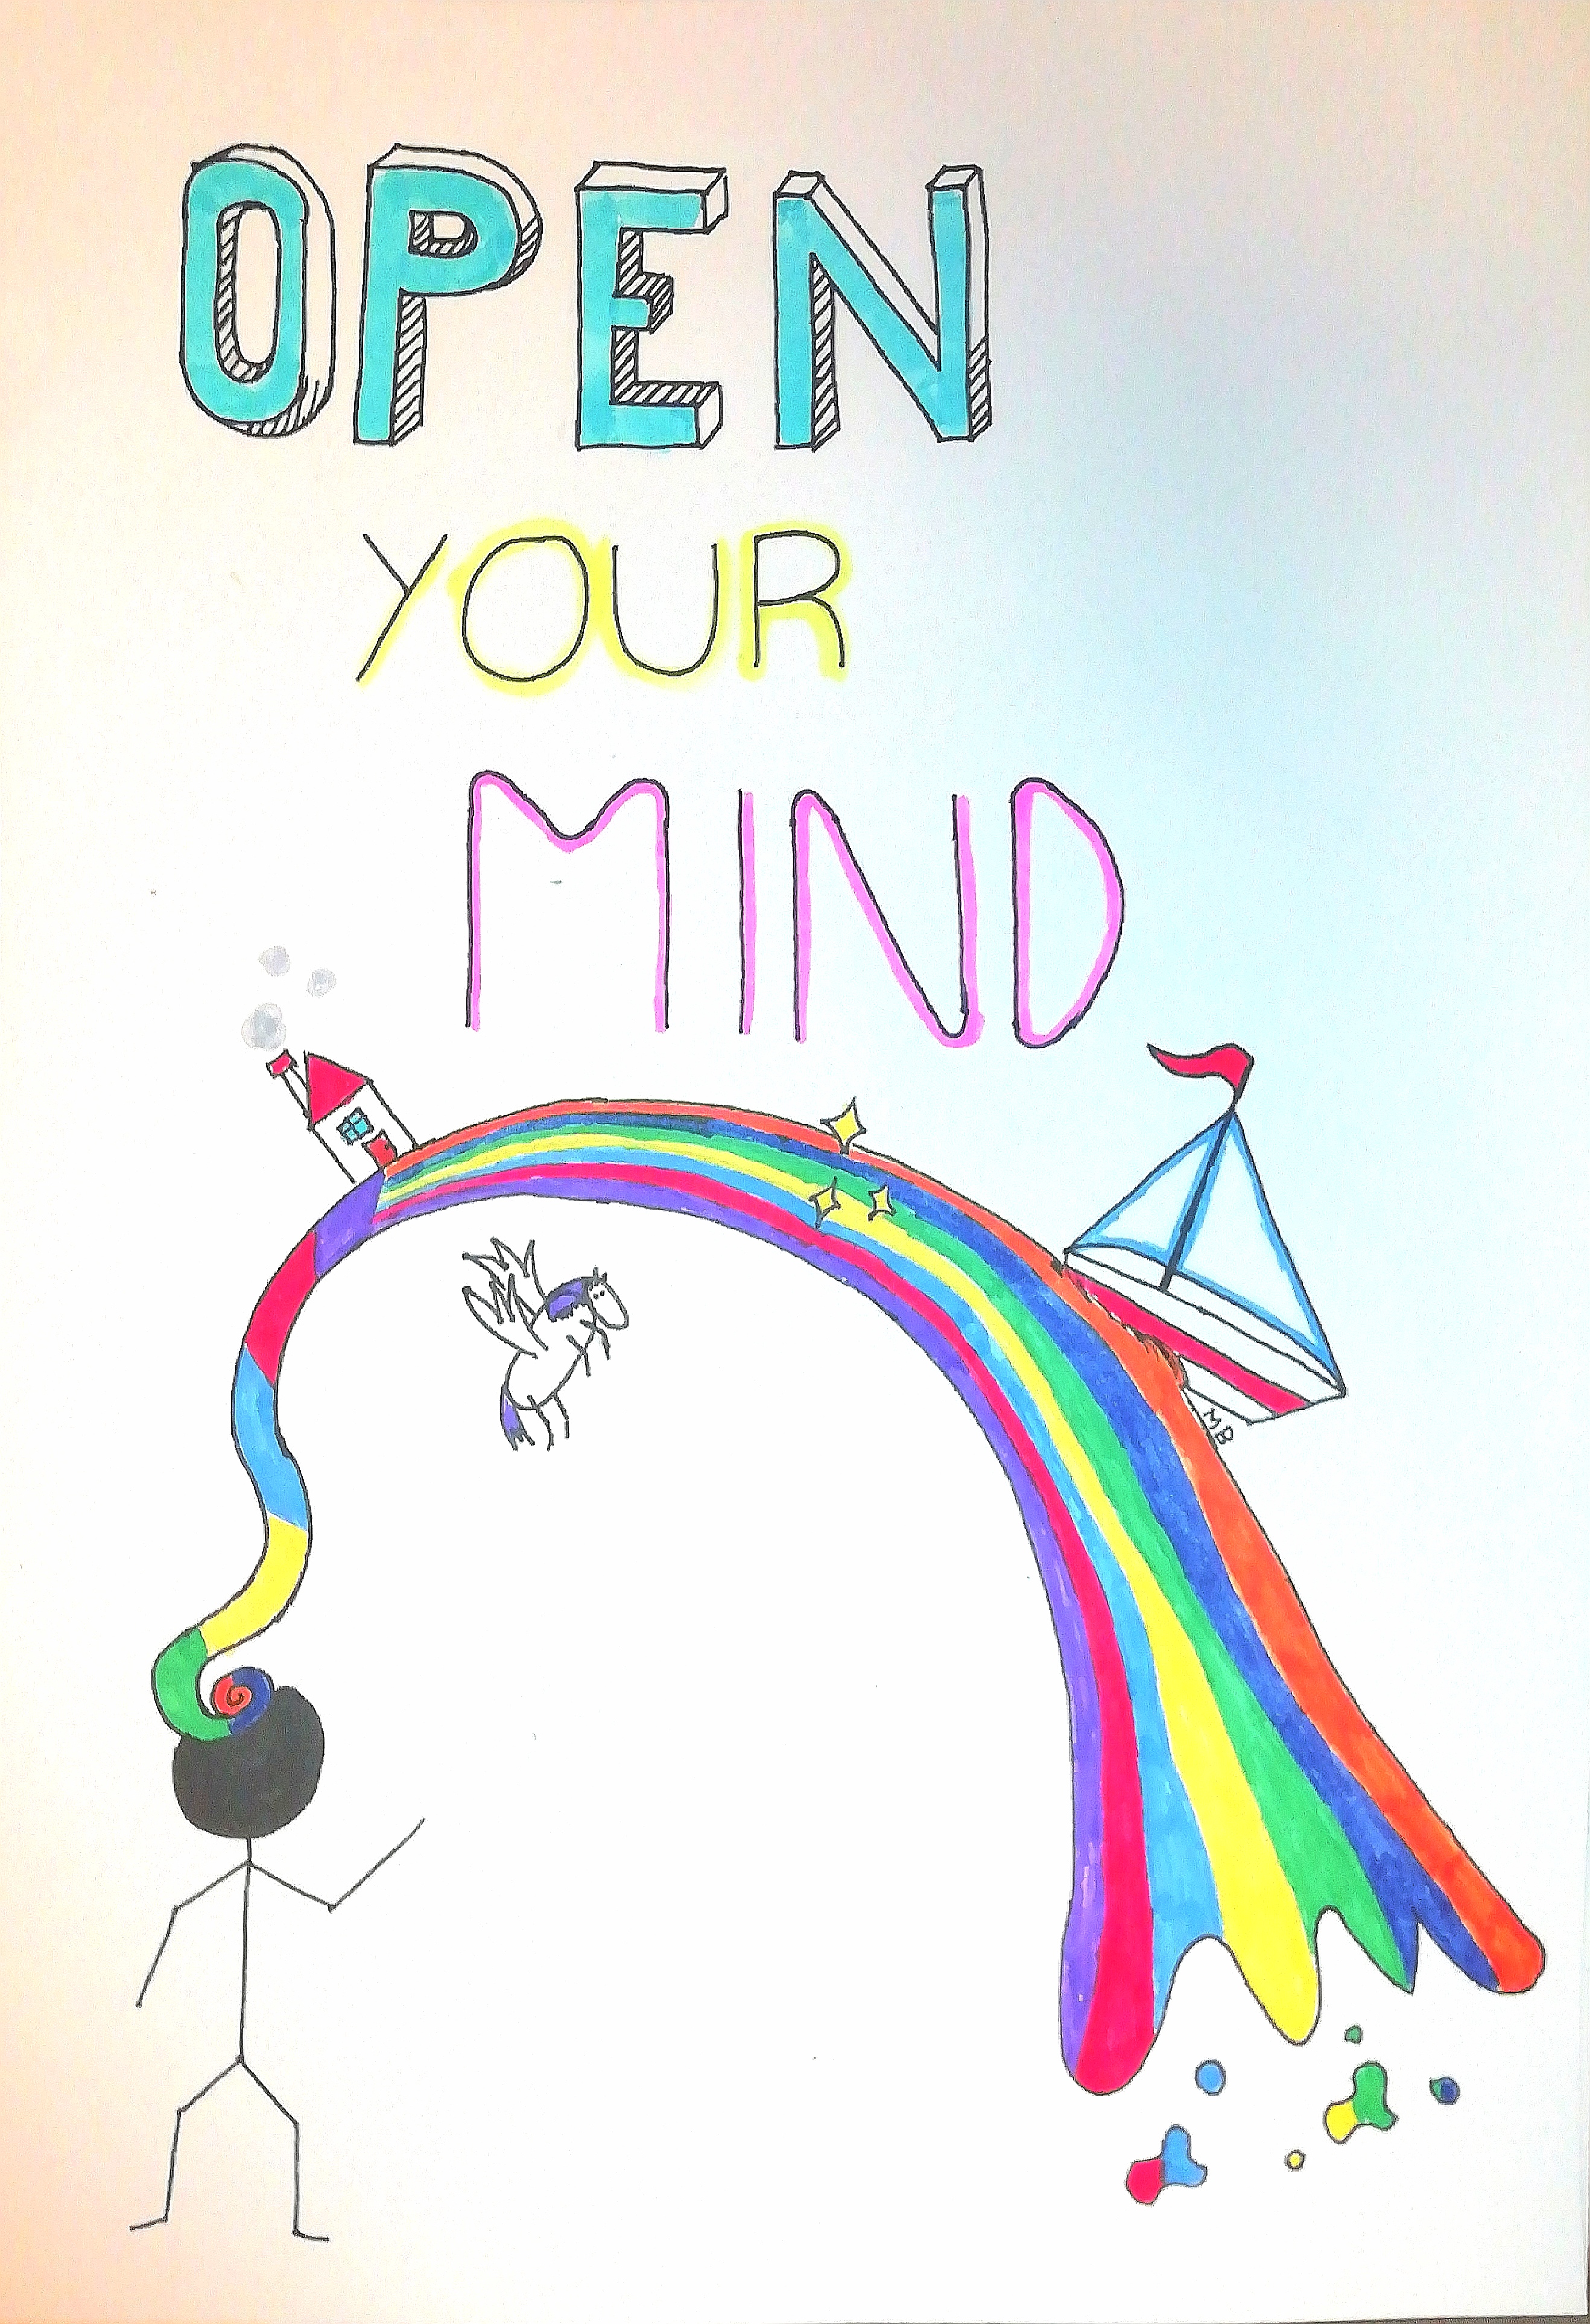 OPEN
YOUR
MIND
MB